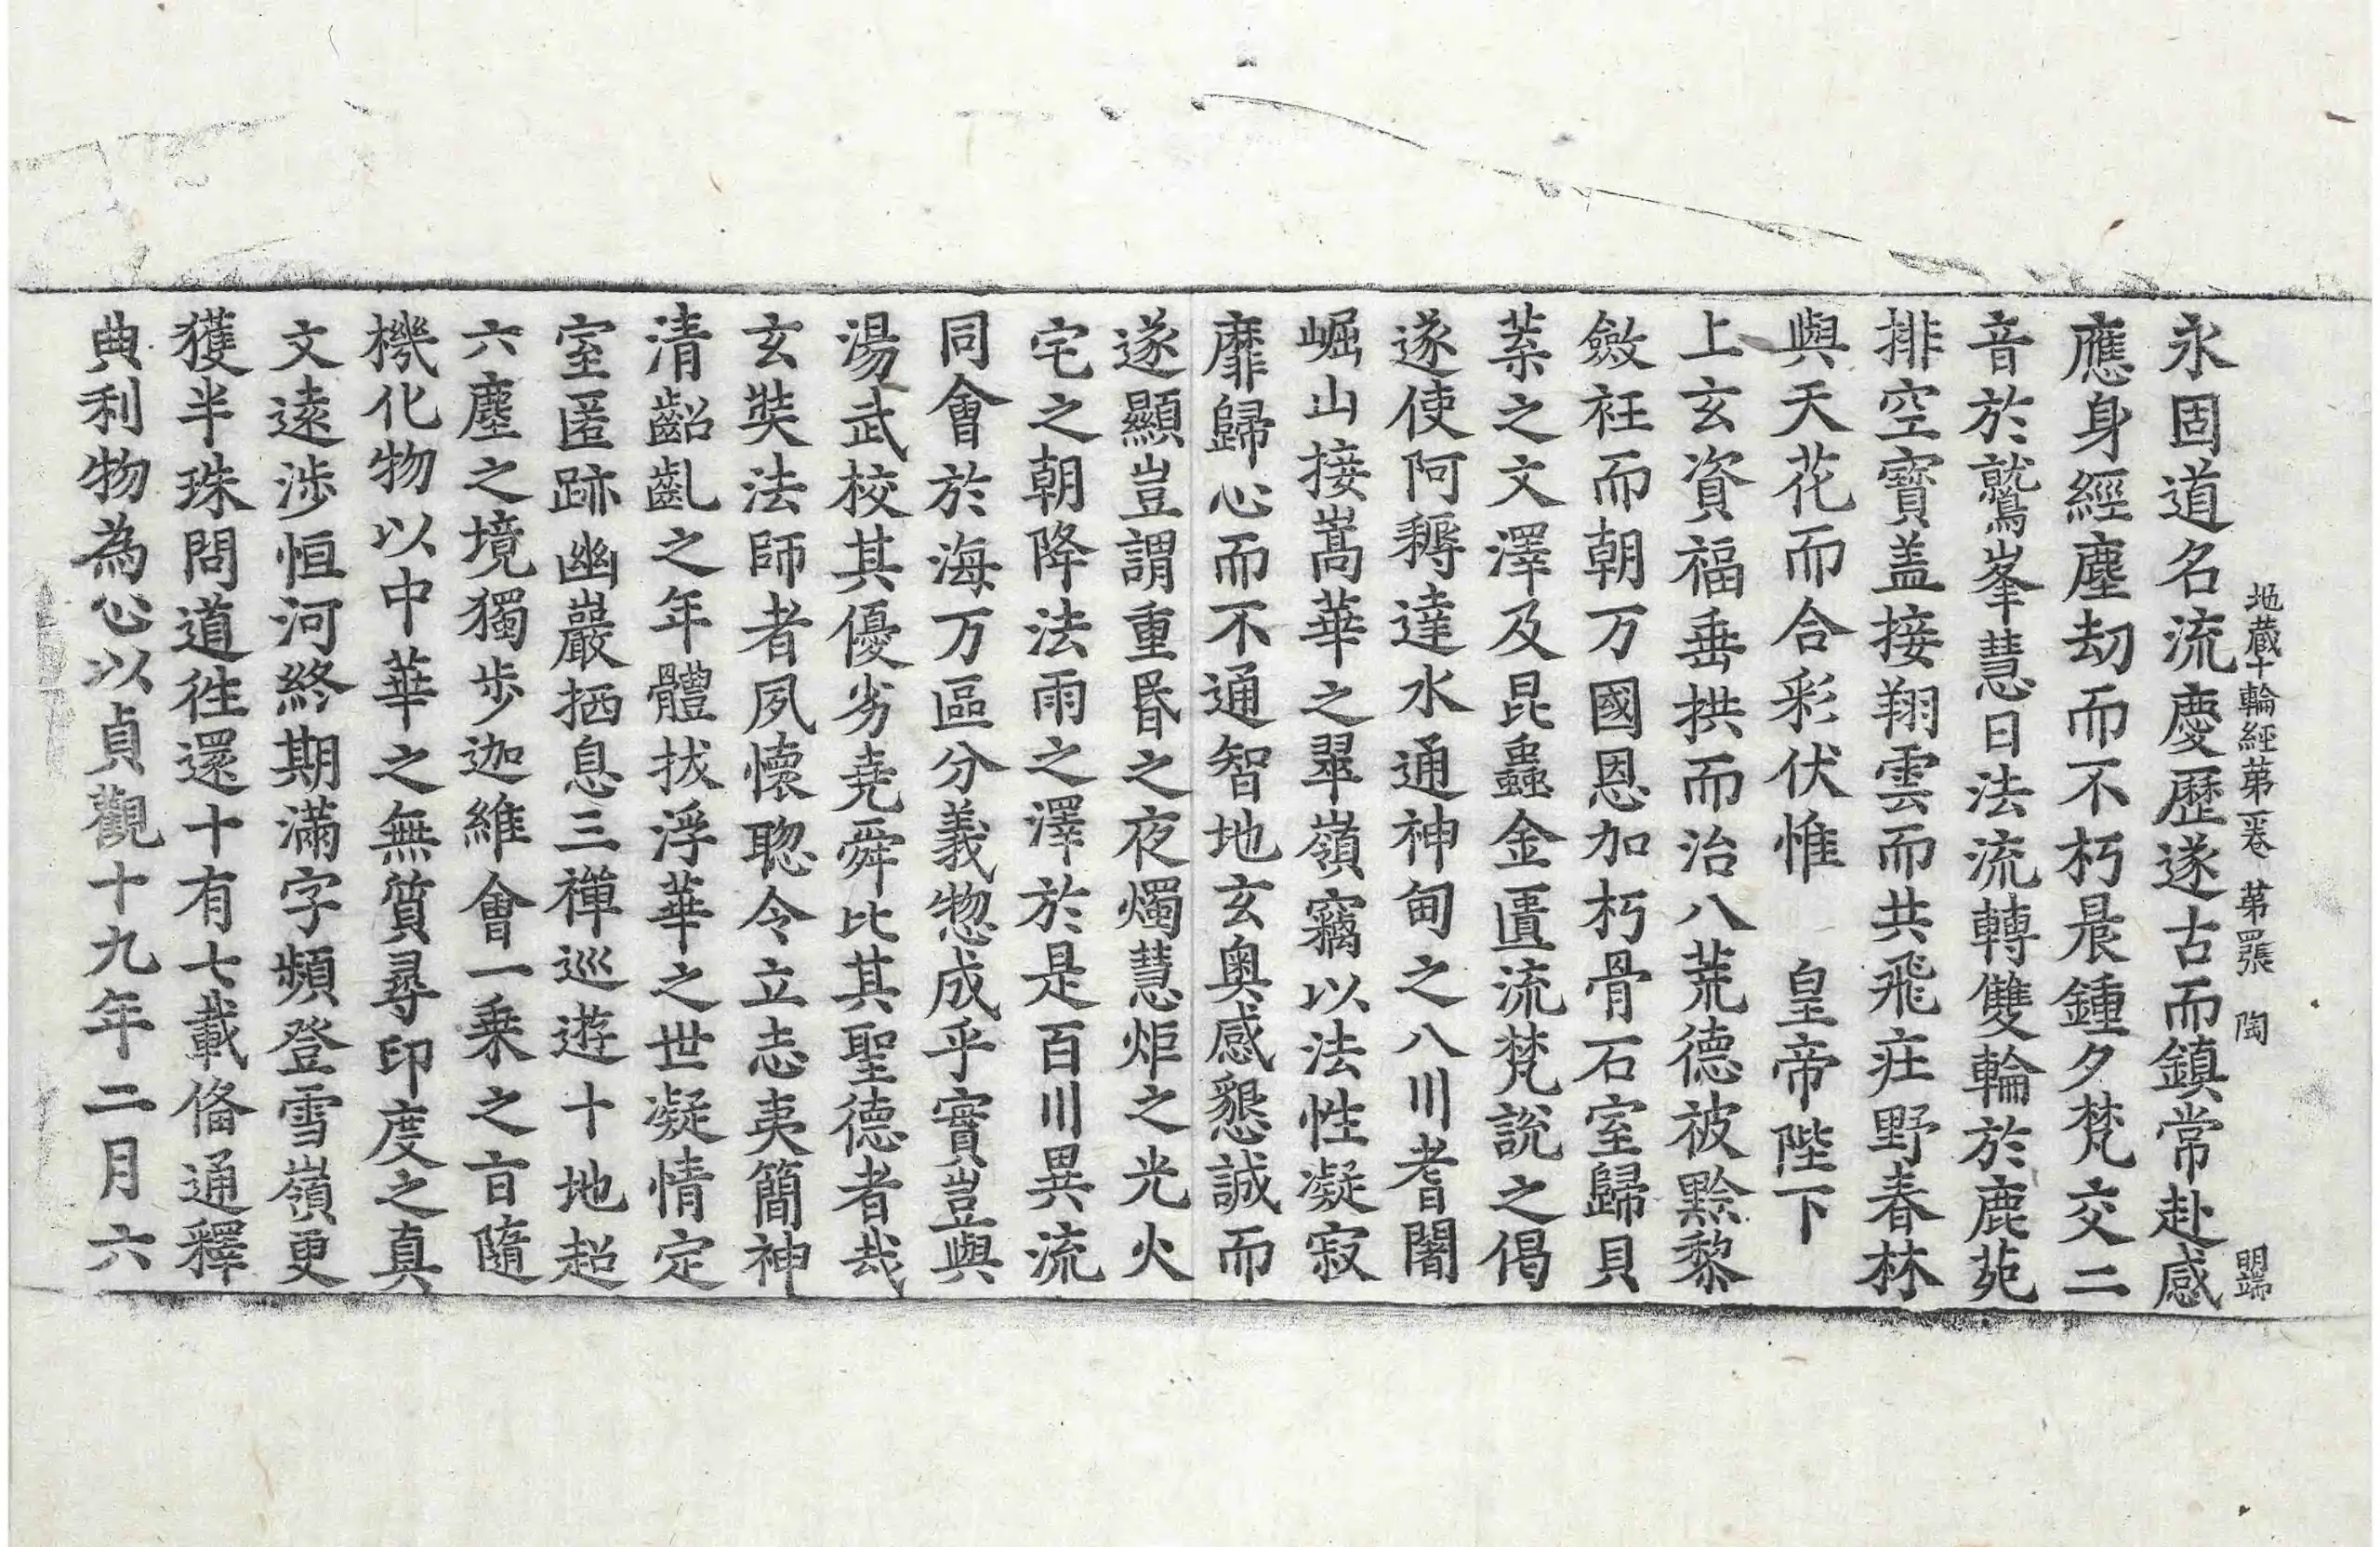 地藏十輪經第一卷 第四張 陶 明端
永固道名流慶歷遂古而鎮常赴感
應身經塵劫而不朽晨鍾夕梵交二
音於鷲峯慧日法流轉雙輪於鹿苑
排空寶盖接翔雲而共飛庄野春林
與天花而合彩伏惟 皇帝陛下
上玄資福垂拱而治八荒德被黔黎
斂衽而朝万國恩加朽骨石室歸貝
葉之文澤及昆蟲金匱流梵說之偈
遂使阿耨達水通神甸之八川耆闍
崛山接嵩華之翠嶺竊以法性凝寂
靡歸心而不通智地玄奧感懇誠而
遂顯豈謂重昬之夜燭慧炬之光火
宅之朝降法雨之澤於是百川異流
同會於海万區分義惣成乎實豈與
湯武校其優劣堯舜比其聖德者哉
玄奘法師者夙懷聦令立志夷簡神
清齠齓之年體拔浮華之世凝情定
室匿跡幽巖栖息三禪巡遊十地超
六塵之境獨步迦維會一乗之旨隨
機化物以中華之無質尋印度之真
文遠涉恒河終期滿字頻登雪嶺更
獲半珠問道往還十有七載俻通釋
典利物為心以貞觀十九年二月六